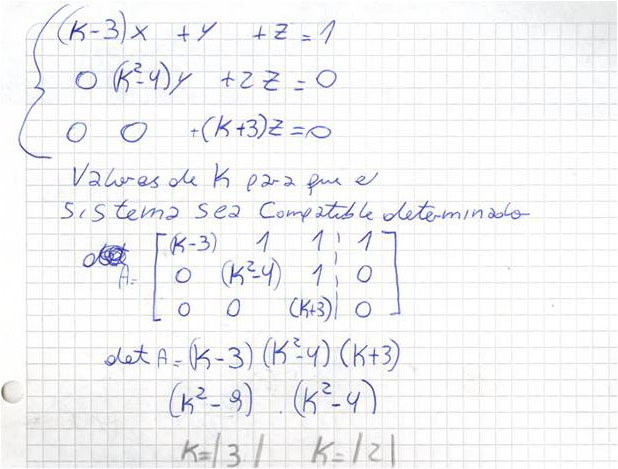 (K-3)x + y + z = 1
0 (K²-4)y + 2z = 0
0 0 +(K+3)z = 0
Valores de K para que el
sistema sea Compatible determinado
A= [ (K-3) 1 1 | 1 ]
[ 0 (K²-4) 1 | 0 ]
[ 0 0 (K+3) | 0 ]
det A = (K-3) (K²-4) (K+3)
(K²-9) . (K²-4)
K=|3| K=|2|